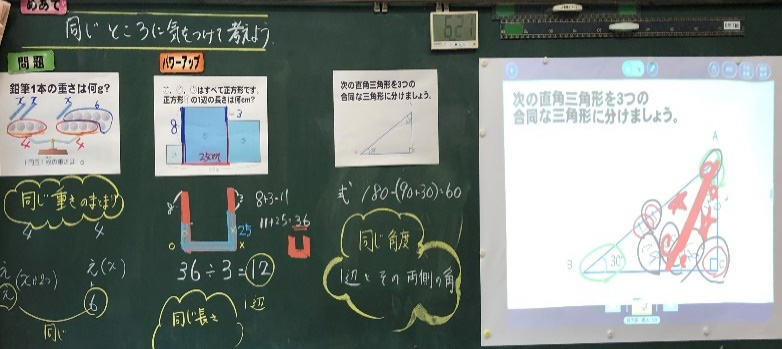 めあて
同じところに気をつけて考えよう。
6:21
問題
鉛筆1本の重さは何g?
6
4
4
同じ重さのまとまり
4
4
同じ
6
パワーアップ
はすべて正方形です。
正方形 の1辺の長さは何cm?
8
-3
25cm
8+3=11
11+25=36
25
36÷3=12
1辺
同じ長さ
次の直角三角形を3つの
合同な三角形に分けましょう。
式 180-(90+30)=60
同じ角度
1辺とその両側の角
次の直角三角形を3つの
合同な三角形に分けましょう。
A
B
30°